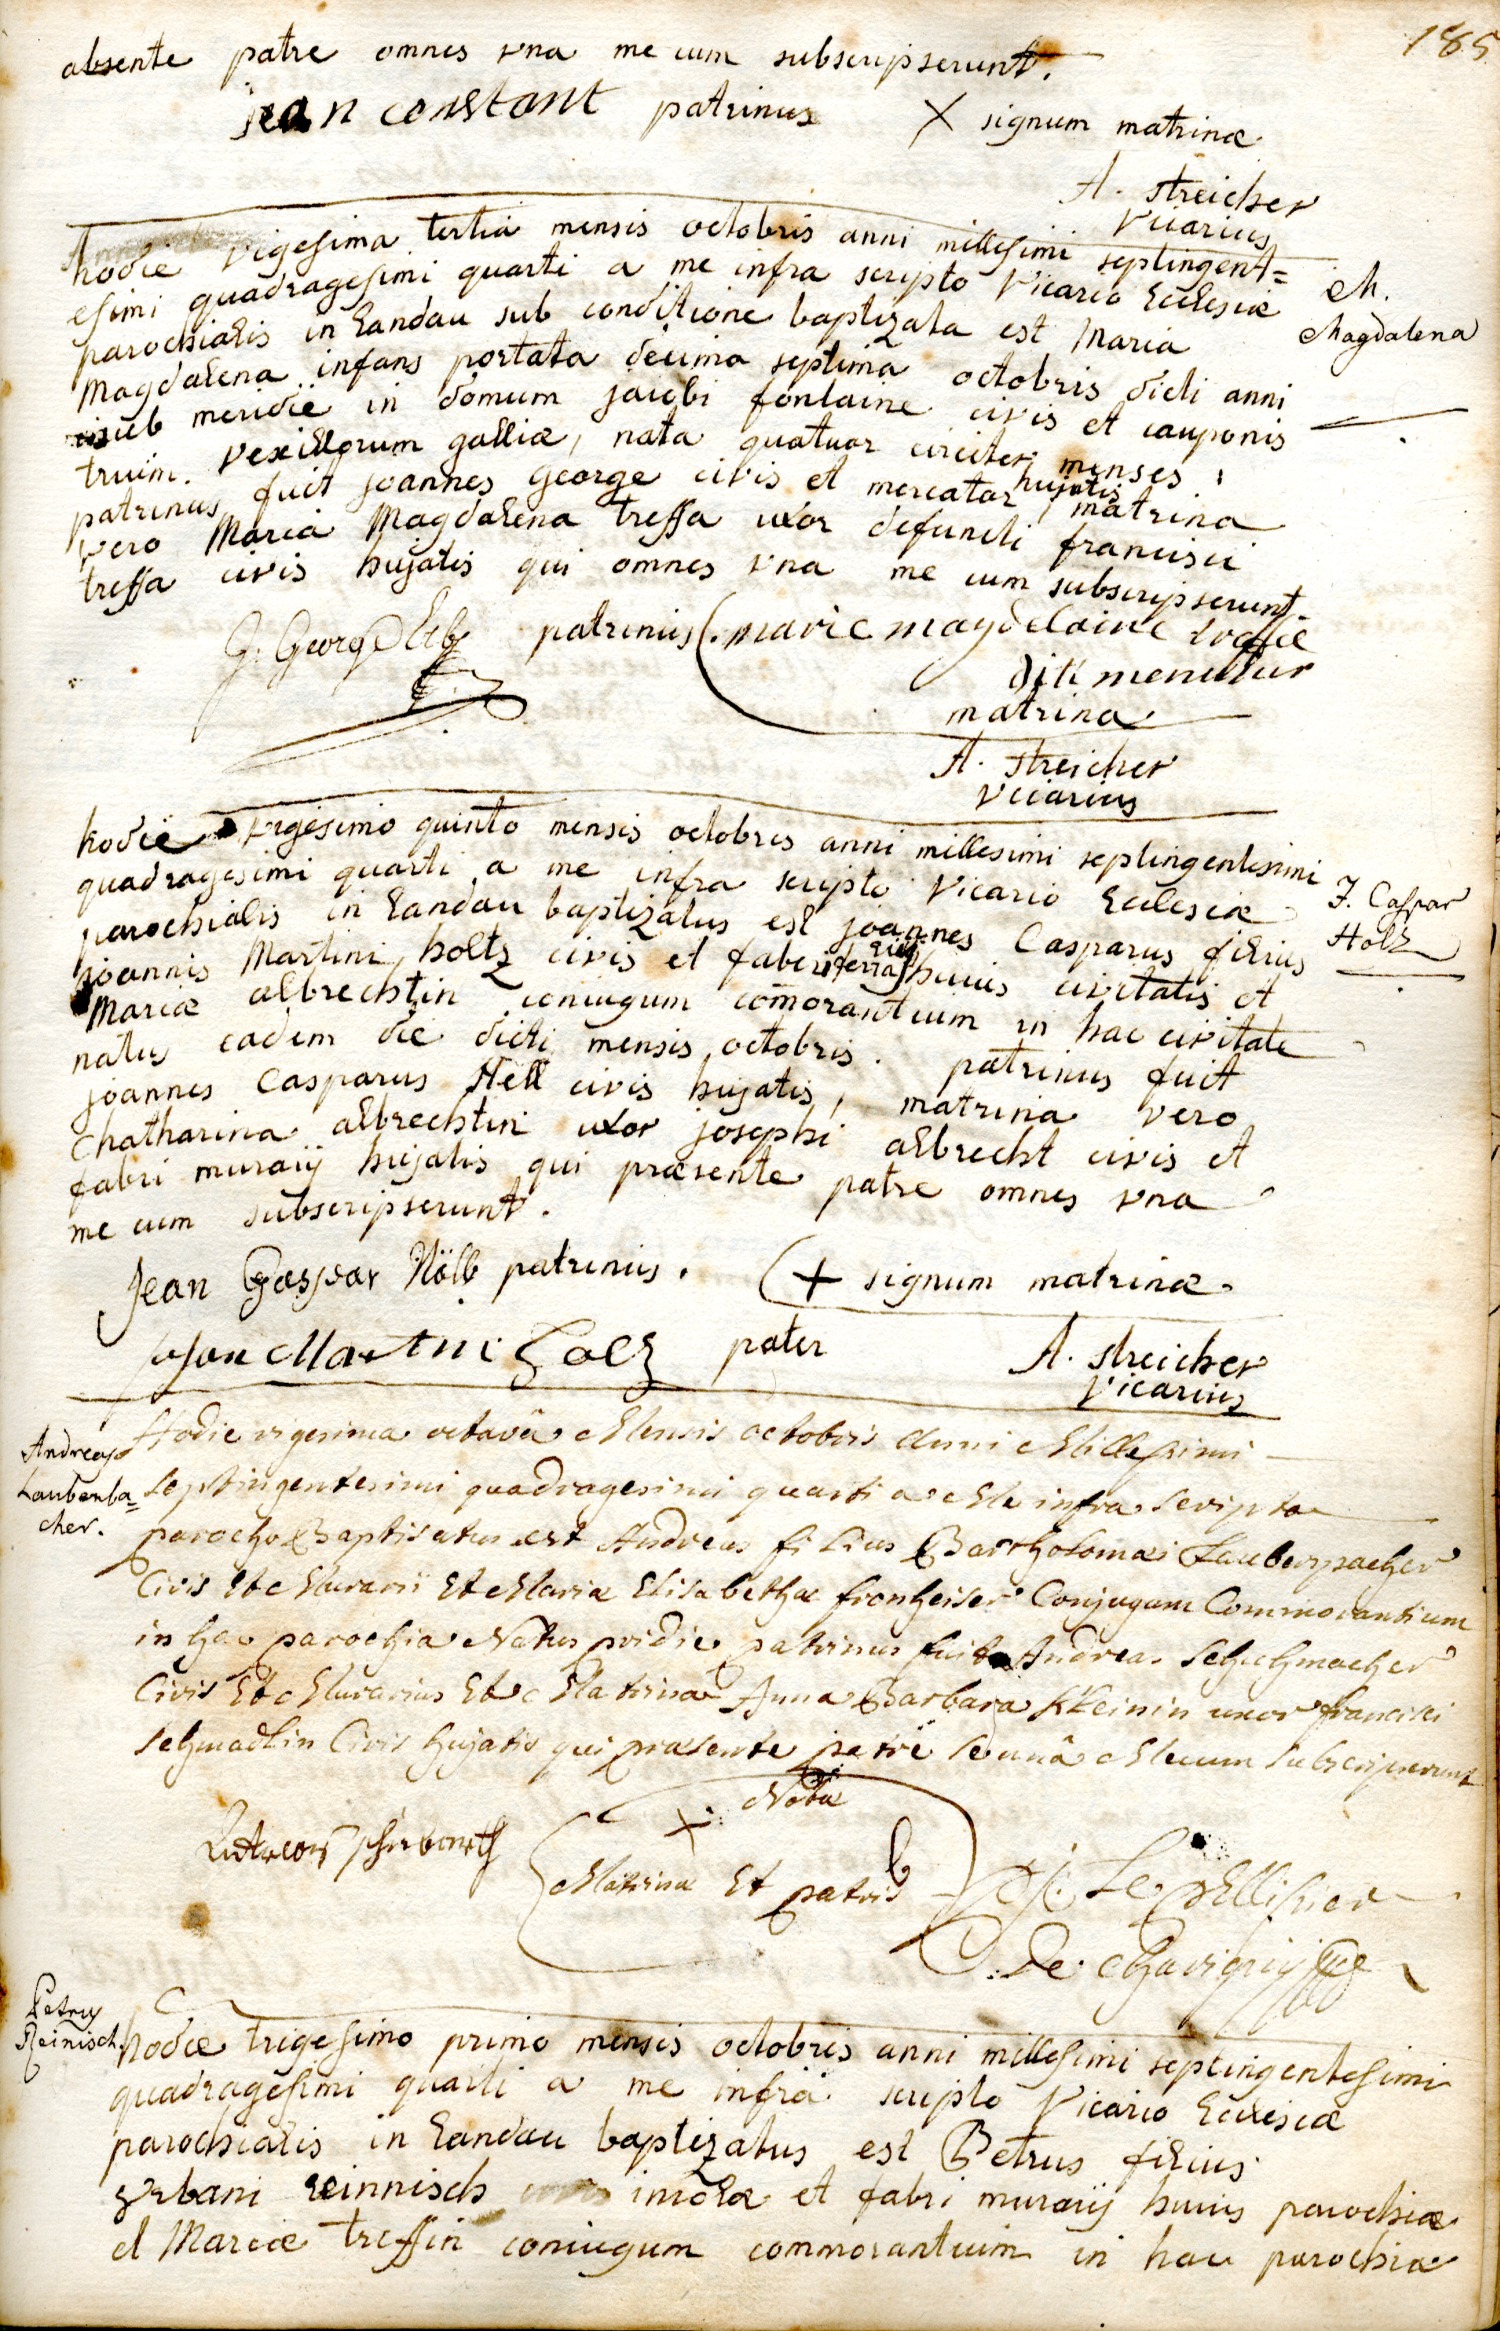 185
absente patre omnes vna me cum subscripserunt.
jean constant patrinus X signum matrinæ.
A. Streicher
Vicarius
hodie vigesima tertia mensis octobris anni millesimi septingent=
esimi quadragesimi quarti a me infra scripto Vicario Ecclesiæ
parochialis in Landau sub conditione baptizata est Maria
Magdalena infans portata decima septima octobris dicti anni
sub meridie in domum jacobi fontaine civis et cauponis
trium vexillorum galliæ, nata quatuor circiter menses;
patrinus fuit joannes George civis et mercator hujatis, matrina
vero Maria Magdalena treffa uxor defuncti francisci
treffa civis hujatis qui omnes vna me cum subscripserunt.
M.
Magdalena
J. George patrinus. marie magdelaine
matrina
A. Streicher
Vicarius
hodie vigesimo quinto mensis octobris anni millesimi septingentesimi
quadragesimi quarti a me infra scripto Vicario Ecclesiæ
parochialis in Landau baptizatus est joannes Casparus filius
joannis Martini holtz civis et fabri huius civitatis et
Mariæ albrechtin coniugum com̄orantium in hac civitate
natus eadem die dicti mensis octobris. patrinus fuit
joannes Casparus Nell civis hujatis, matrina vero
Chatharina albrechtin uxor josephi albrecht civis et
fabri murarij hujatis qui præsente patre omnes vna
me cum subscripserunt.
J. Caspar
Holz
Jean Gaspar Nöll patrinus. + signum matrinæ.
Johan Martin Holz pater A. Streicher
Vicarius
Andreas
Laubenba=
cher.
Hodie vigesima octavâ Mensis octobris Anni Millesimi
septingentesimi quadragesimi quarti a Me infra scripto
parocho Baptisatus est Andreas filius Bartholomæi Lauberspacher
Civis Et Murarii Et Mariæ Elisabethæ fronheiser Conjugum Commorantium
in hac parochia Natus pridie patrinus fuit Andreas Schuhmacher
Civis Et Murarius Et Matrina Anna Barbara Kleinin uxor francisci
schmadlin Civis hujatis qui præsente patre se unâ Mecum subscripserunt
X Nota
Matrinæ Et patris
Le pellissier
De Chavigny
Petrus
Reinisch.
hodie trigesimo primo mensis octobris anni millesimi septingentesimi
quadragesimi quarti a me infra scripto Vicario Ecclesiæ
parochialis in Landau baptizatus est Petrus filius
Vrbani Reinnisch incolæ et fabri murarij huius parochiæ
et Mariæ treffin coniugum commorantium in hac parochia